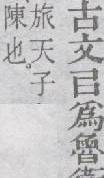 古文㠯爲魯衛
旅天子
陳也。